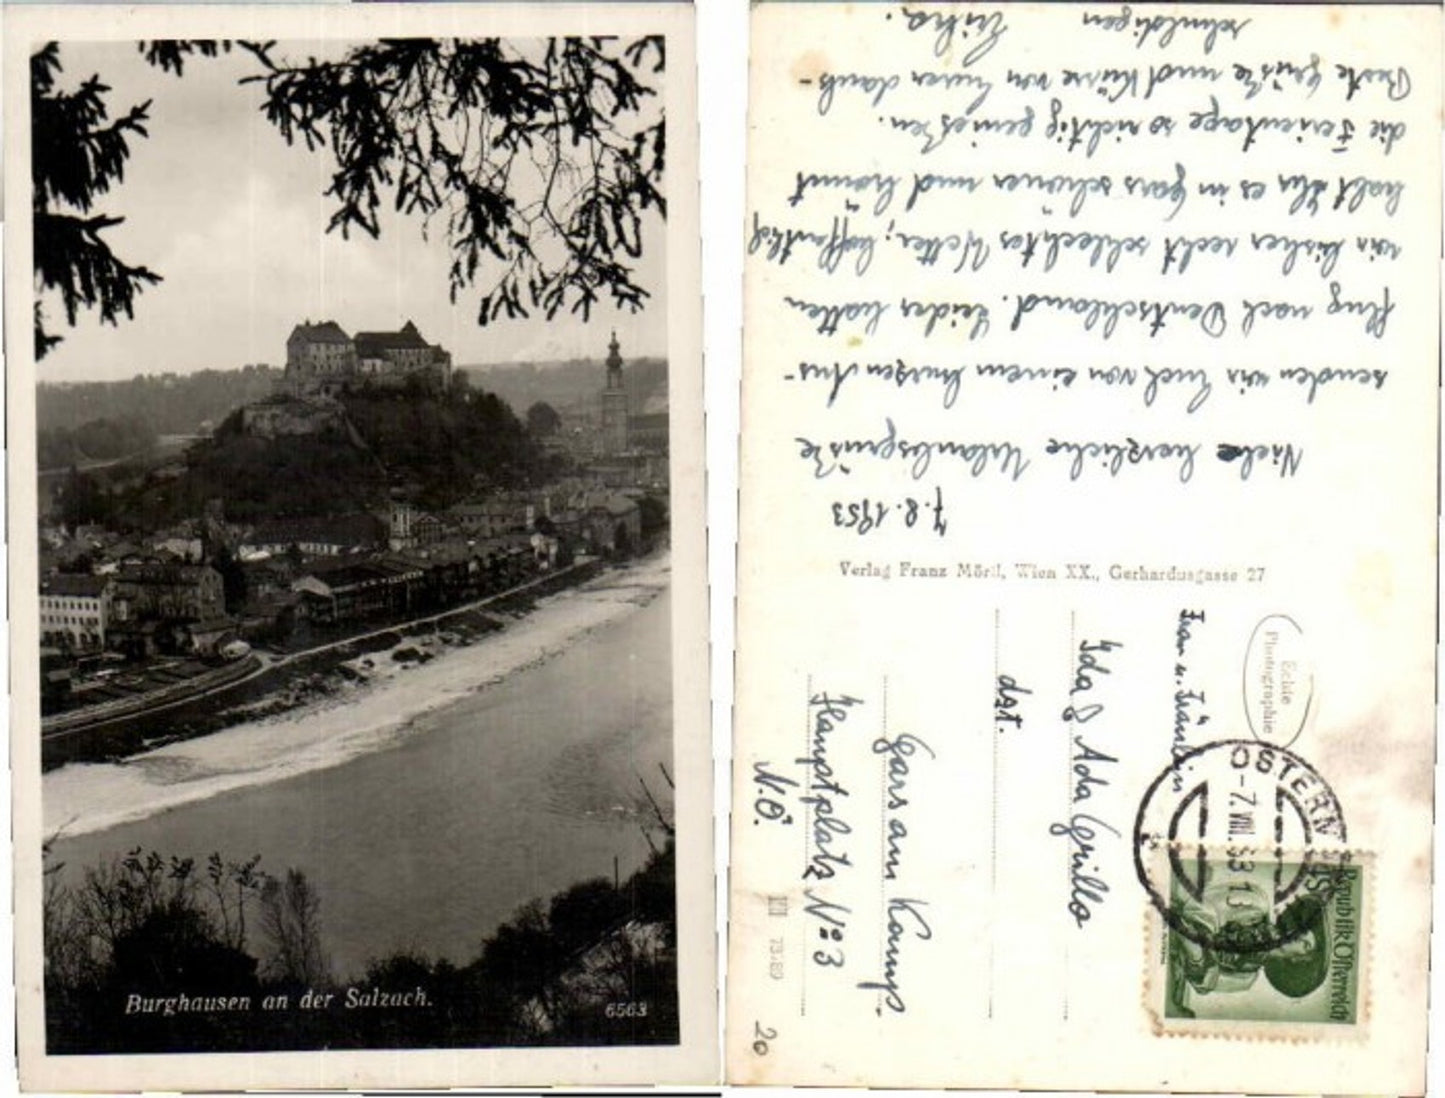 Burghausen an der Salzach.
6563
7.8.1953
Viele herzliche Urlaubsgrüße
senden wir Euch von einem kurzen Aus-
flug nach Deutschland. Leider hatten
wir bisher recht schlechtes Wetter; hoffentlich
habt Ihr es in Gars schöner und könnt
die Ferientage so richtig genießen.
Beste Grüße und Küsse von Eurer dank-
schuldigen
Verlag Franz Mörtl, Wien XX., Gerhardusgasse 27
Echte
Photographie
Frau u. Fräulein
Ida & Ada Grillo
dzt.
Gars am Kamp
Hauptplatz No 3
N.Ö.
OSTERN
-7.VIII.53 13
Republik Österreich
20